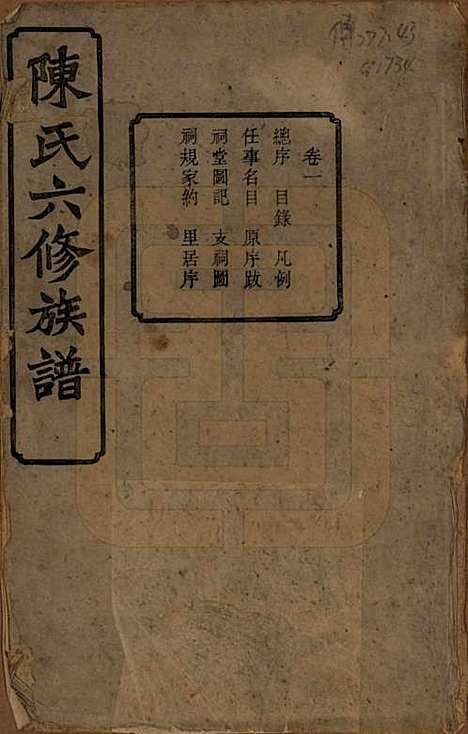 陳氏六修族譜
卷一
總序 目錄 凡例
任事名目 原序跋
祠堂圖記 支祠圖
祠規家約 里居序